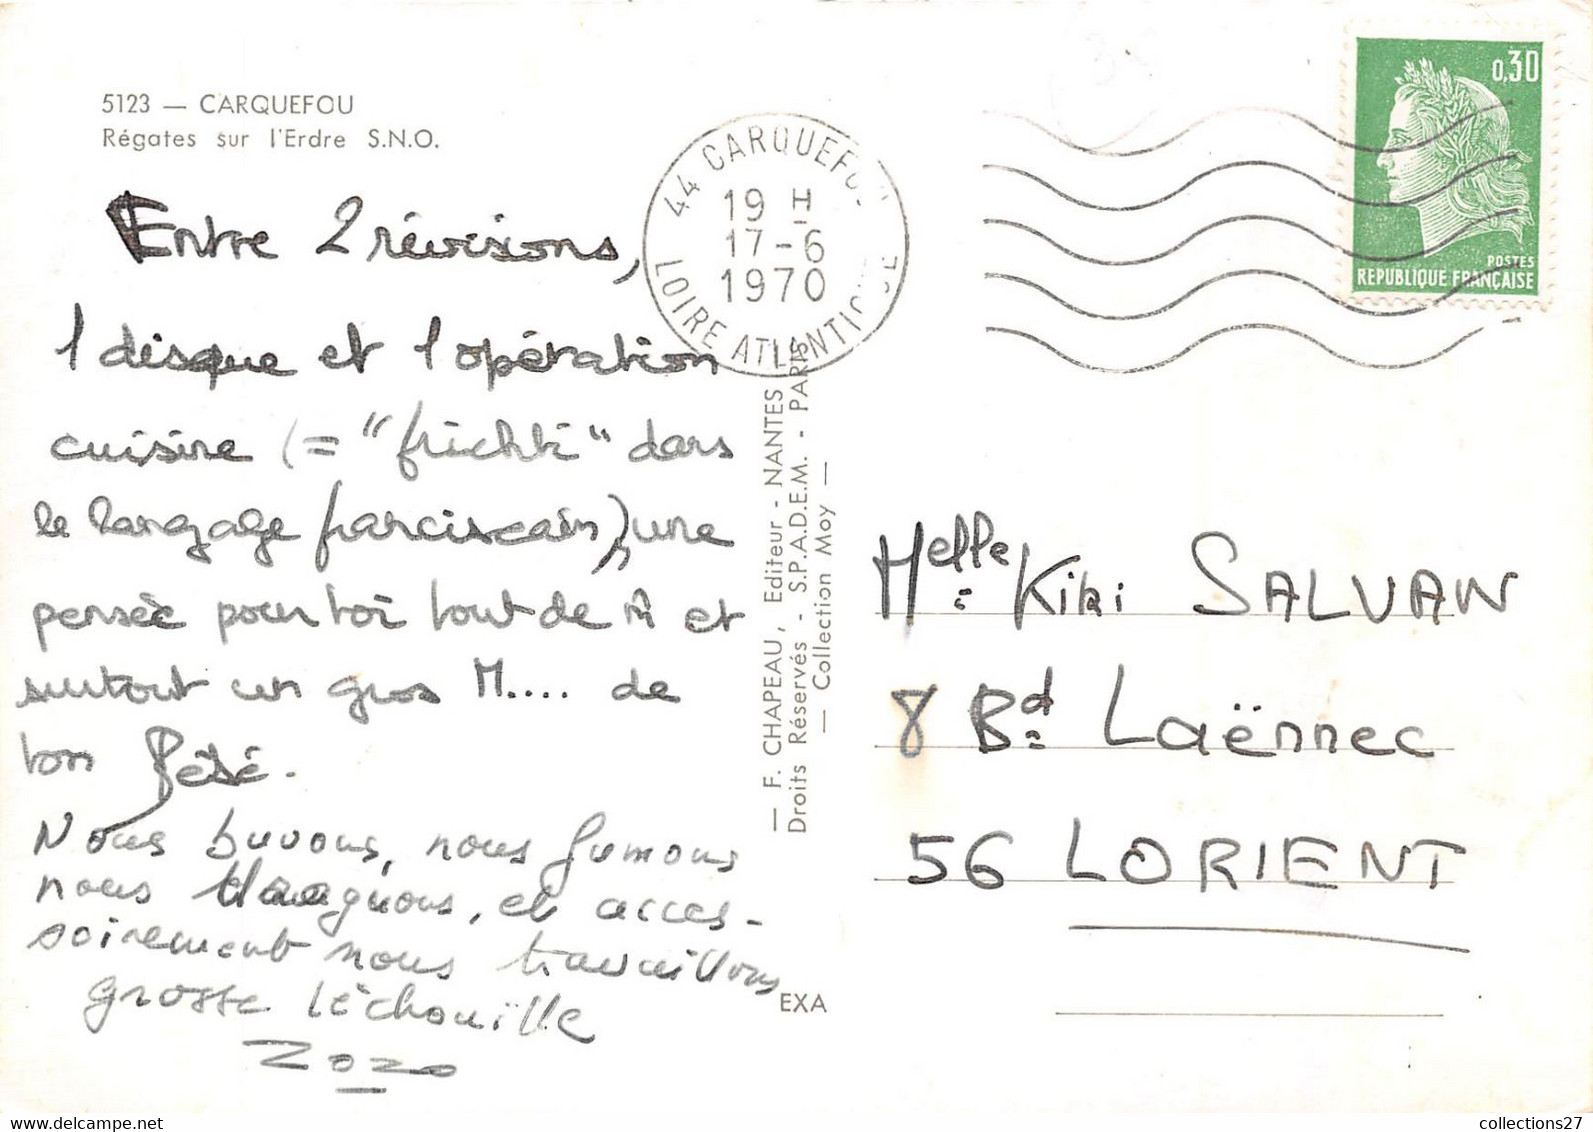 5123 — CARQUEFOU
Régates sur l'Erdre S.N.O.
Entre 2 révisions,
1 disque et 1 opération
cuisine (= "frichti" dans
le langage franciscain), une
pensée pour toi tout de m̂ et
surtout un gros M.... de
ton Bébé.
Nous buvons, nous fumons
nous draguons, et acces-
soirement nous travaillons
grosse léchouille
ZOZO
44 CARQUEFOU
19 H
17-6
1970
LOIRE ATLANTIQUE
0,30
POSTES
REPUBLIQUE FRANÇAISE
— F. CHAPEAU, Editeur - NANTES
Droits Réservés - S.P.A.D.E.M. - PARIS
— Collection Moy —
EXA
Melle Kiki SALVAN
8 Bd Laënnec
56 LORIENT
collections27